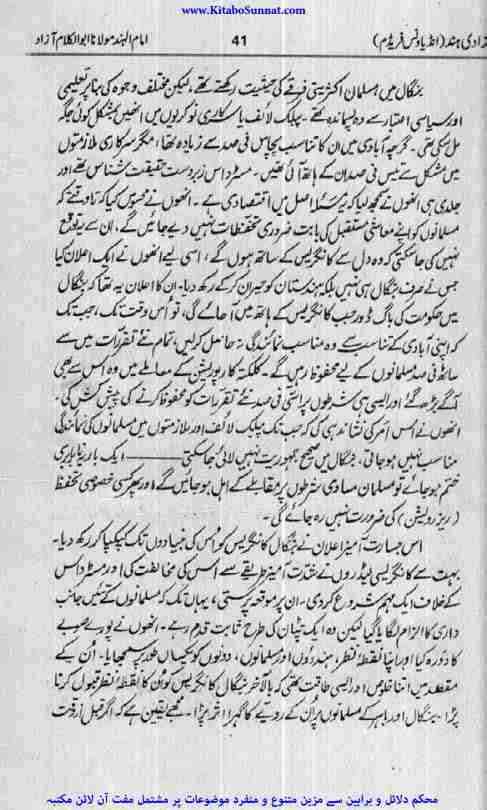 www.KitaboSunnat.com
زادی ہند (انڈیا ونس فریڈم)
41
امام الہند مولانا ابوالکلام آزاد
بنگال میں مسلمان اکثریتی فرقے کی حیثیت رکھتے تھے، لیکن مختلف وجوہ کی بنا پر تعلیمی
اور سیاسی اعتبار سے وہ پسماندہ تھے۔ پبلک لائف یا سرکاری نوکریوں میں انھیں بمشکل کوئی جگہ
مل سکی تھی۔ گرچہ آبادی میں ان کا تناسب پچاس فی صد سے زیادہ تھا، مگر سرکاری ملازمتوں
میں مشکل سے تیس فی صد ان کے ہاتھ آئی تھیں۔ مسٹر داس زبردست حقیقت شناس تھے اور
جلد ہی انھوں نے سمجھ لیا کہ یہ مسئلہ اصل میں اقتصادی ہے۔ انھوں نے محسوس کیا کہ تاوقتے کہ
مسلمانوں کو اپنے معاشی مستقبل کی بابت ضروری تحفظات نہیں دیے جائیں گے، ان سے یہ توقع
نہیں کی جا سکتی کہ وہ دل سے کانگریس کے ساتھ ہوں گے، اسی لیے انھوں نے ایک اعلان کیا
جس نے صرف بنگال ہی نہیں بلکہ ہندستان کو حیران کر کے رکھ دیا۔ ان کا اعلان یہ تھا کہ بنگال
میں حکومت کی باگ ڈور جب کانگریس کے ہاتھ میں آ جائے گی، تو اس وقت تک، جب تک
کہ اپنی آبادی کے تناسب سے وہ مناسب نمائندگی نہ حاصل کر لیں، تمام نئے تقررات میں سے
ساٹھ فی صد مسلمانوں کے لیے محفوظ رہیں گے۔ کلکتہ کارپوریشن کے معاملے میں وہ اس سے بھی
آگے بڑھ گئے اور ایسی ہی شرطوں پر اسّی فی صد نئے تقررات کو محفوظ کرنے کی پیش کش کی۔
انھوں نے اس امر کی نشاندہی کی کہ جب تک پبلک لائف اور ملازمتوں میں مسلمانوں کی نمائندگی
مناسب نہیں ہو جاتی، بنگال میں صحیح جمہوریت نہیں لائی جا سکتی ——— ایک بار یہ نابرابری
ختم ہو جائے تو مسلمان مساوی شرطوں پر مقابلے کے اہل ہو جائیں گے اور پھر کسی خصوصی تحفظ
(ریزرویشن) کی ضرورت نہیں رہ جائے گی۔
اس جسارت آمیز اعلان نے بنگال کانگریس کو اس کی بنیادوں تک کپکپا کر رکھ دیا۔
بہت سے کانگریسی لیڈروں نے شدت آمیز طریقے سے اس کی مخالفت کی اور مسٹر داس
کے خلاف ایک مہم شروع کر دی۔ ان پر موقعہ پرستی، یہاں تک کہ مسلمانوں کے تئیں جانب
داری کا الزام لگایا گیا لیکن وہ ایک چٹان کی طرح ثابت قدم رہے۔ انھوں نے پورے صوبے
کا دورہ کیا اور اپنا نقطۂ نظر، ہندوؤں اور مسلمانوں، دونوں کو یکساں طور پر سمجھایا۔ ان کے
مقصد میں اتنا خلوص اور ایسی طاقت تھی کہ بالآخر بنگال کانگریس کو ان کا نقطۂ نظر قبول کرنا
پڑا۔ بنگال اور باہر کے مسلمانوں پر ان کے رویے کا گہرا اثر پڑا۔ مجھے یقین ہے کہ اگر قبل از وقت
محکم دلائل و براہین سے مزین متنوع و منفرد موضوعات پر مشتمل مفت آن لائن مکتبہ